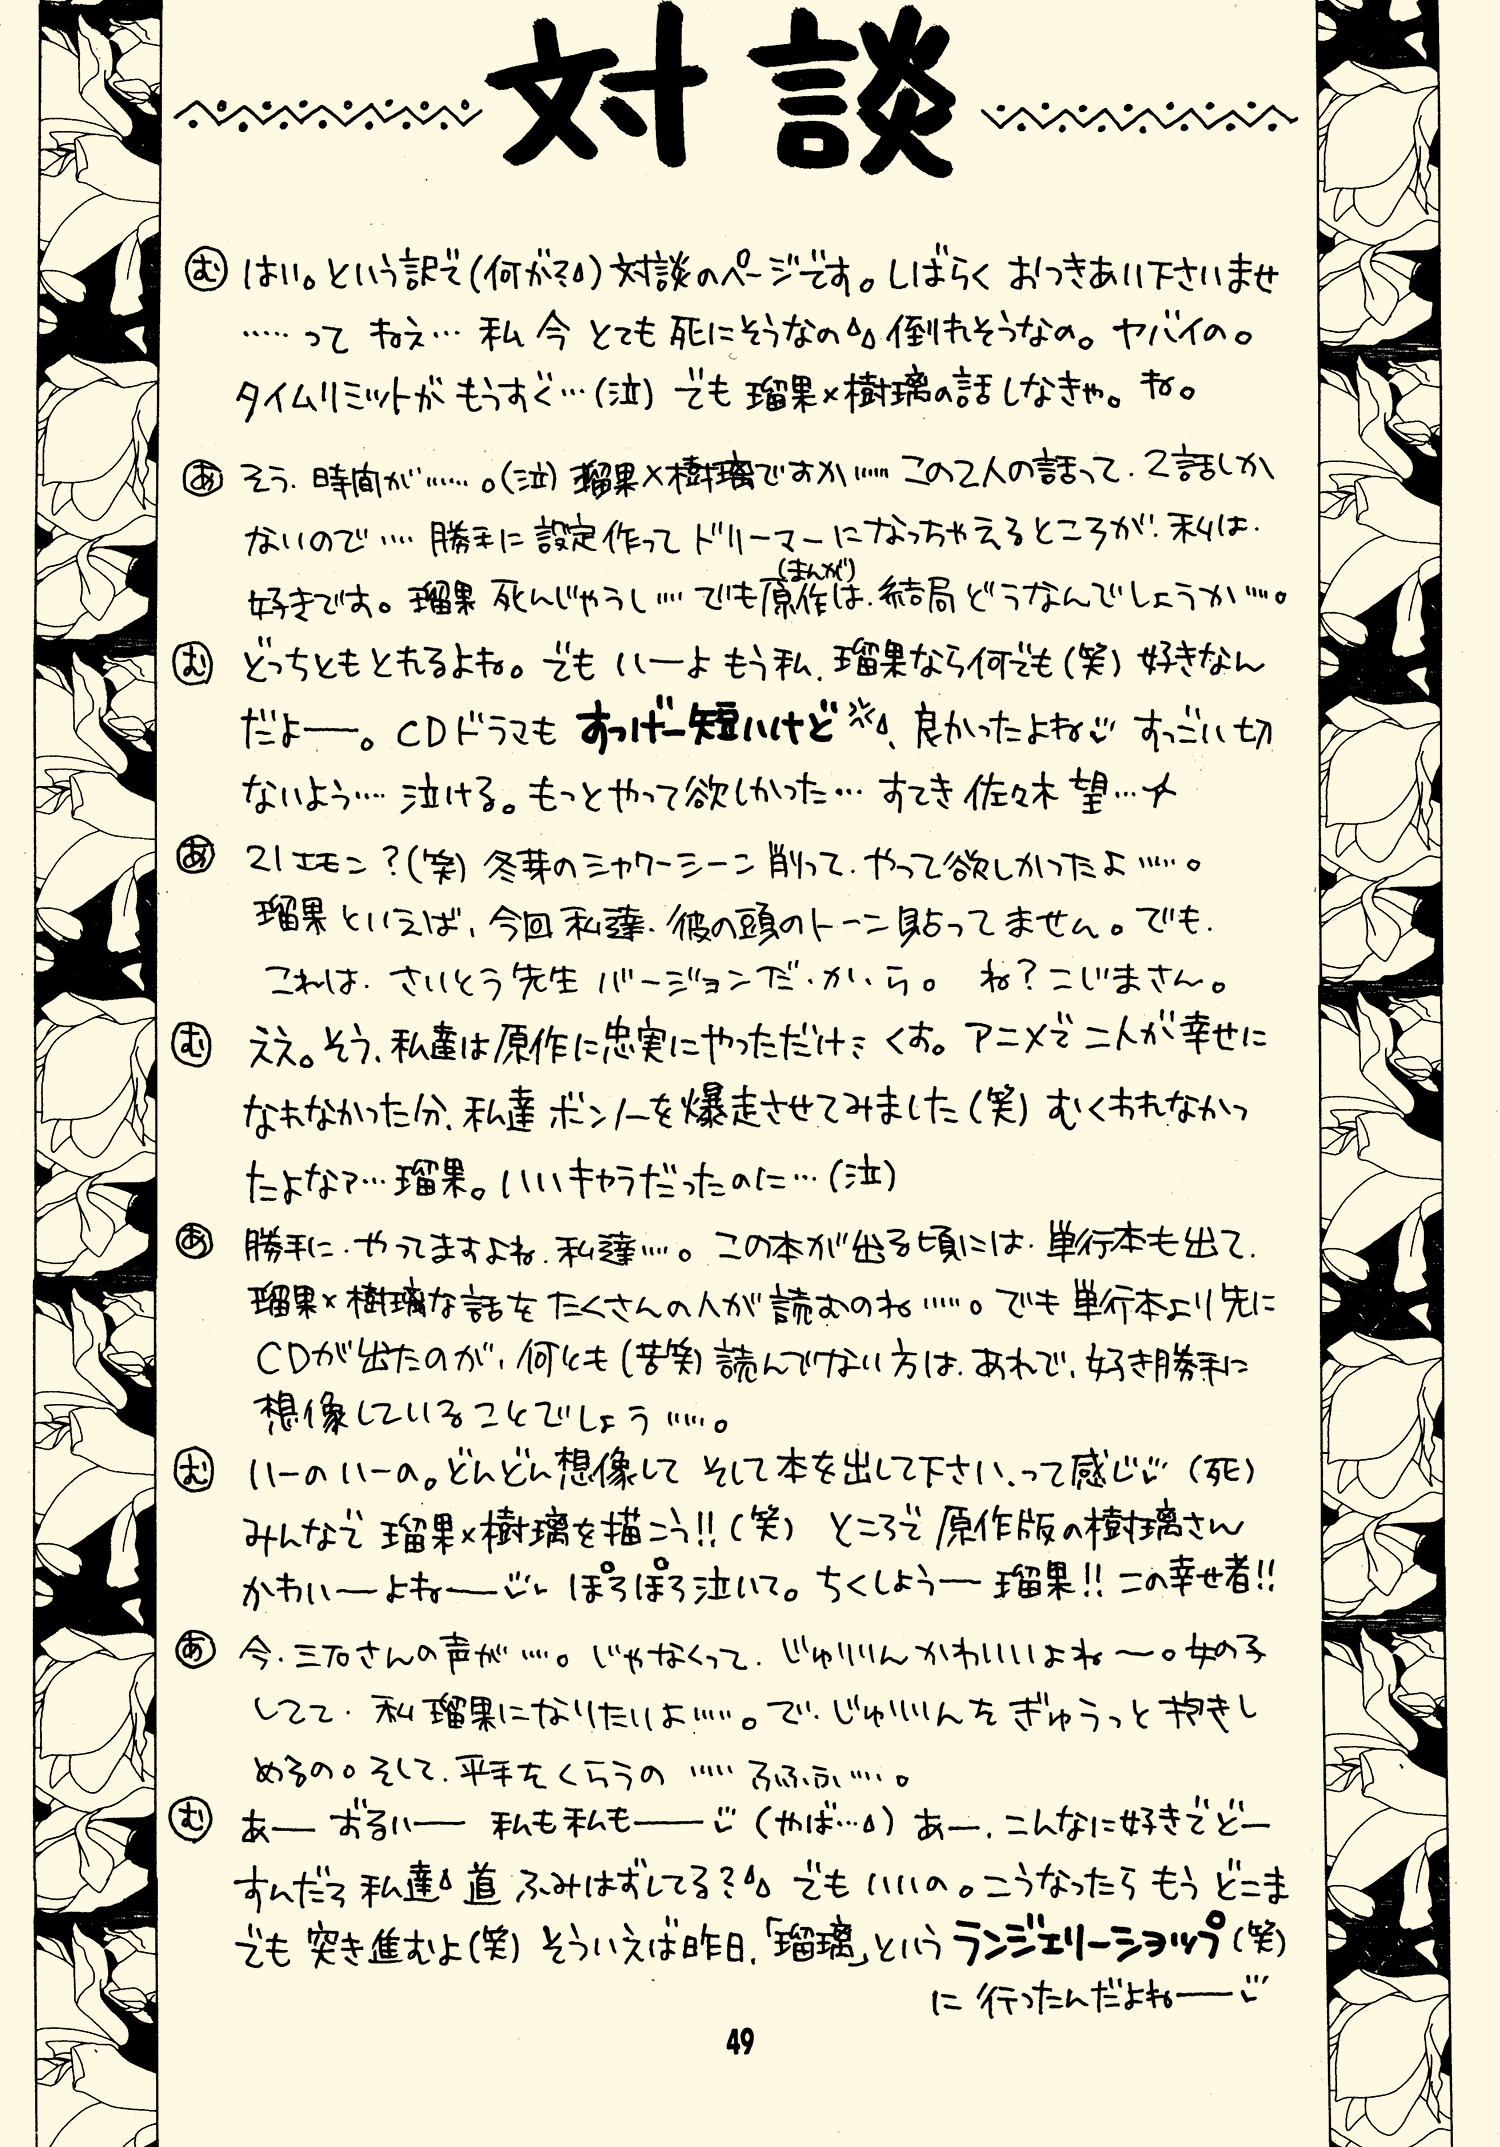 対談
む はい。という訳で(何が?)対談のページです。しばらく おつきあい下さいませ
……って ねえ… 私 今 とても 死にそうなの 倒れそうなの。ヤバイの。
タイムリミットが もうすぐ…(泣) でも 瑠果×樹璃の話しなきゃ。ね。
あ そう、時間が……。(泣) 瑠果×樹璃ですか…… この2人の話って、2話しか
ないので…… 勝手に 設定作って ドリーマーになっちゃえるところが、私は、
好きです。瑠果 死んじゃうし…… でも原作(まんが)は、結局どうなんでしょうか……。
む どっちともとれるよね。でも いーよ もう私、瑠果なら何でも(笑) 好きなん
だよー。CDドラマも すっげー短いけど、良かったよね すっごい切
ないよう…… 泣ける。もっとやって欲しかった… すてき 佐々木 望…
あ 21エモン?(笑) 冬芽のシャワーシーン 削って、やって欲しかったよ……。
瑠果といえば、今回 私達、彼の頭のトーン貼ってません。でも、
これは、さいとう先生 バージョンだ・か・ら。 ね?こじまさん。
む ええ。そう、私達は原作に忠実にやっただけ くす。アニメで二人が幸せに
なれなかった分、私達 ボンノーを爆走させてみました(笑) むくわれなかっ
たよなァ…瑠果。いいキャラだったのに…(泣)
あ 勝手に、やってますよね、私達……。この本が出る頃には、単行本も出て、
瑠果×樹璃な話を たくさんの人が 読むのね……。でも 単行本より先に
CDが出たのが、何とも(苦笑) 読んでない方は、あれで、好き勝手に
想像していることでしょう……。
む いーのいーの。どんどん想像して そして本を出して下さい、って感じ (死)
みんなで 瑠果×樹璃を描こう!!(笑) ところで 原作版の樹璃さん
かわいーよねー ぽろぽろ泣いて。ちくしょうー 瑠果!!この幸せ者!!
あ 今、三石さんの声が……。じゃなくって、じゅりりんかわいいよね〜。女の子
してて、私 瑠果になりたいよ……。で、じゅりりんを ぎゅうっと 抱きし
めるの。そして、平手を くらうの …… ふふふ……。
む あー ずるいー 私も私もー (やば…) あー、こんなに好きでどー
すんだろ 私達 道 ふみはずしてる? でも いいの。こうなったら もう どこま
でも 突き進むよ(笑) そういえば昨日、「瑠璃」という ランジェリーショップ(笑)
に 行ったんだよねー
49